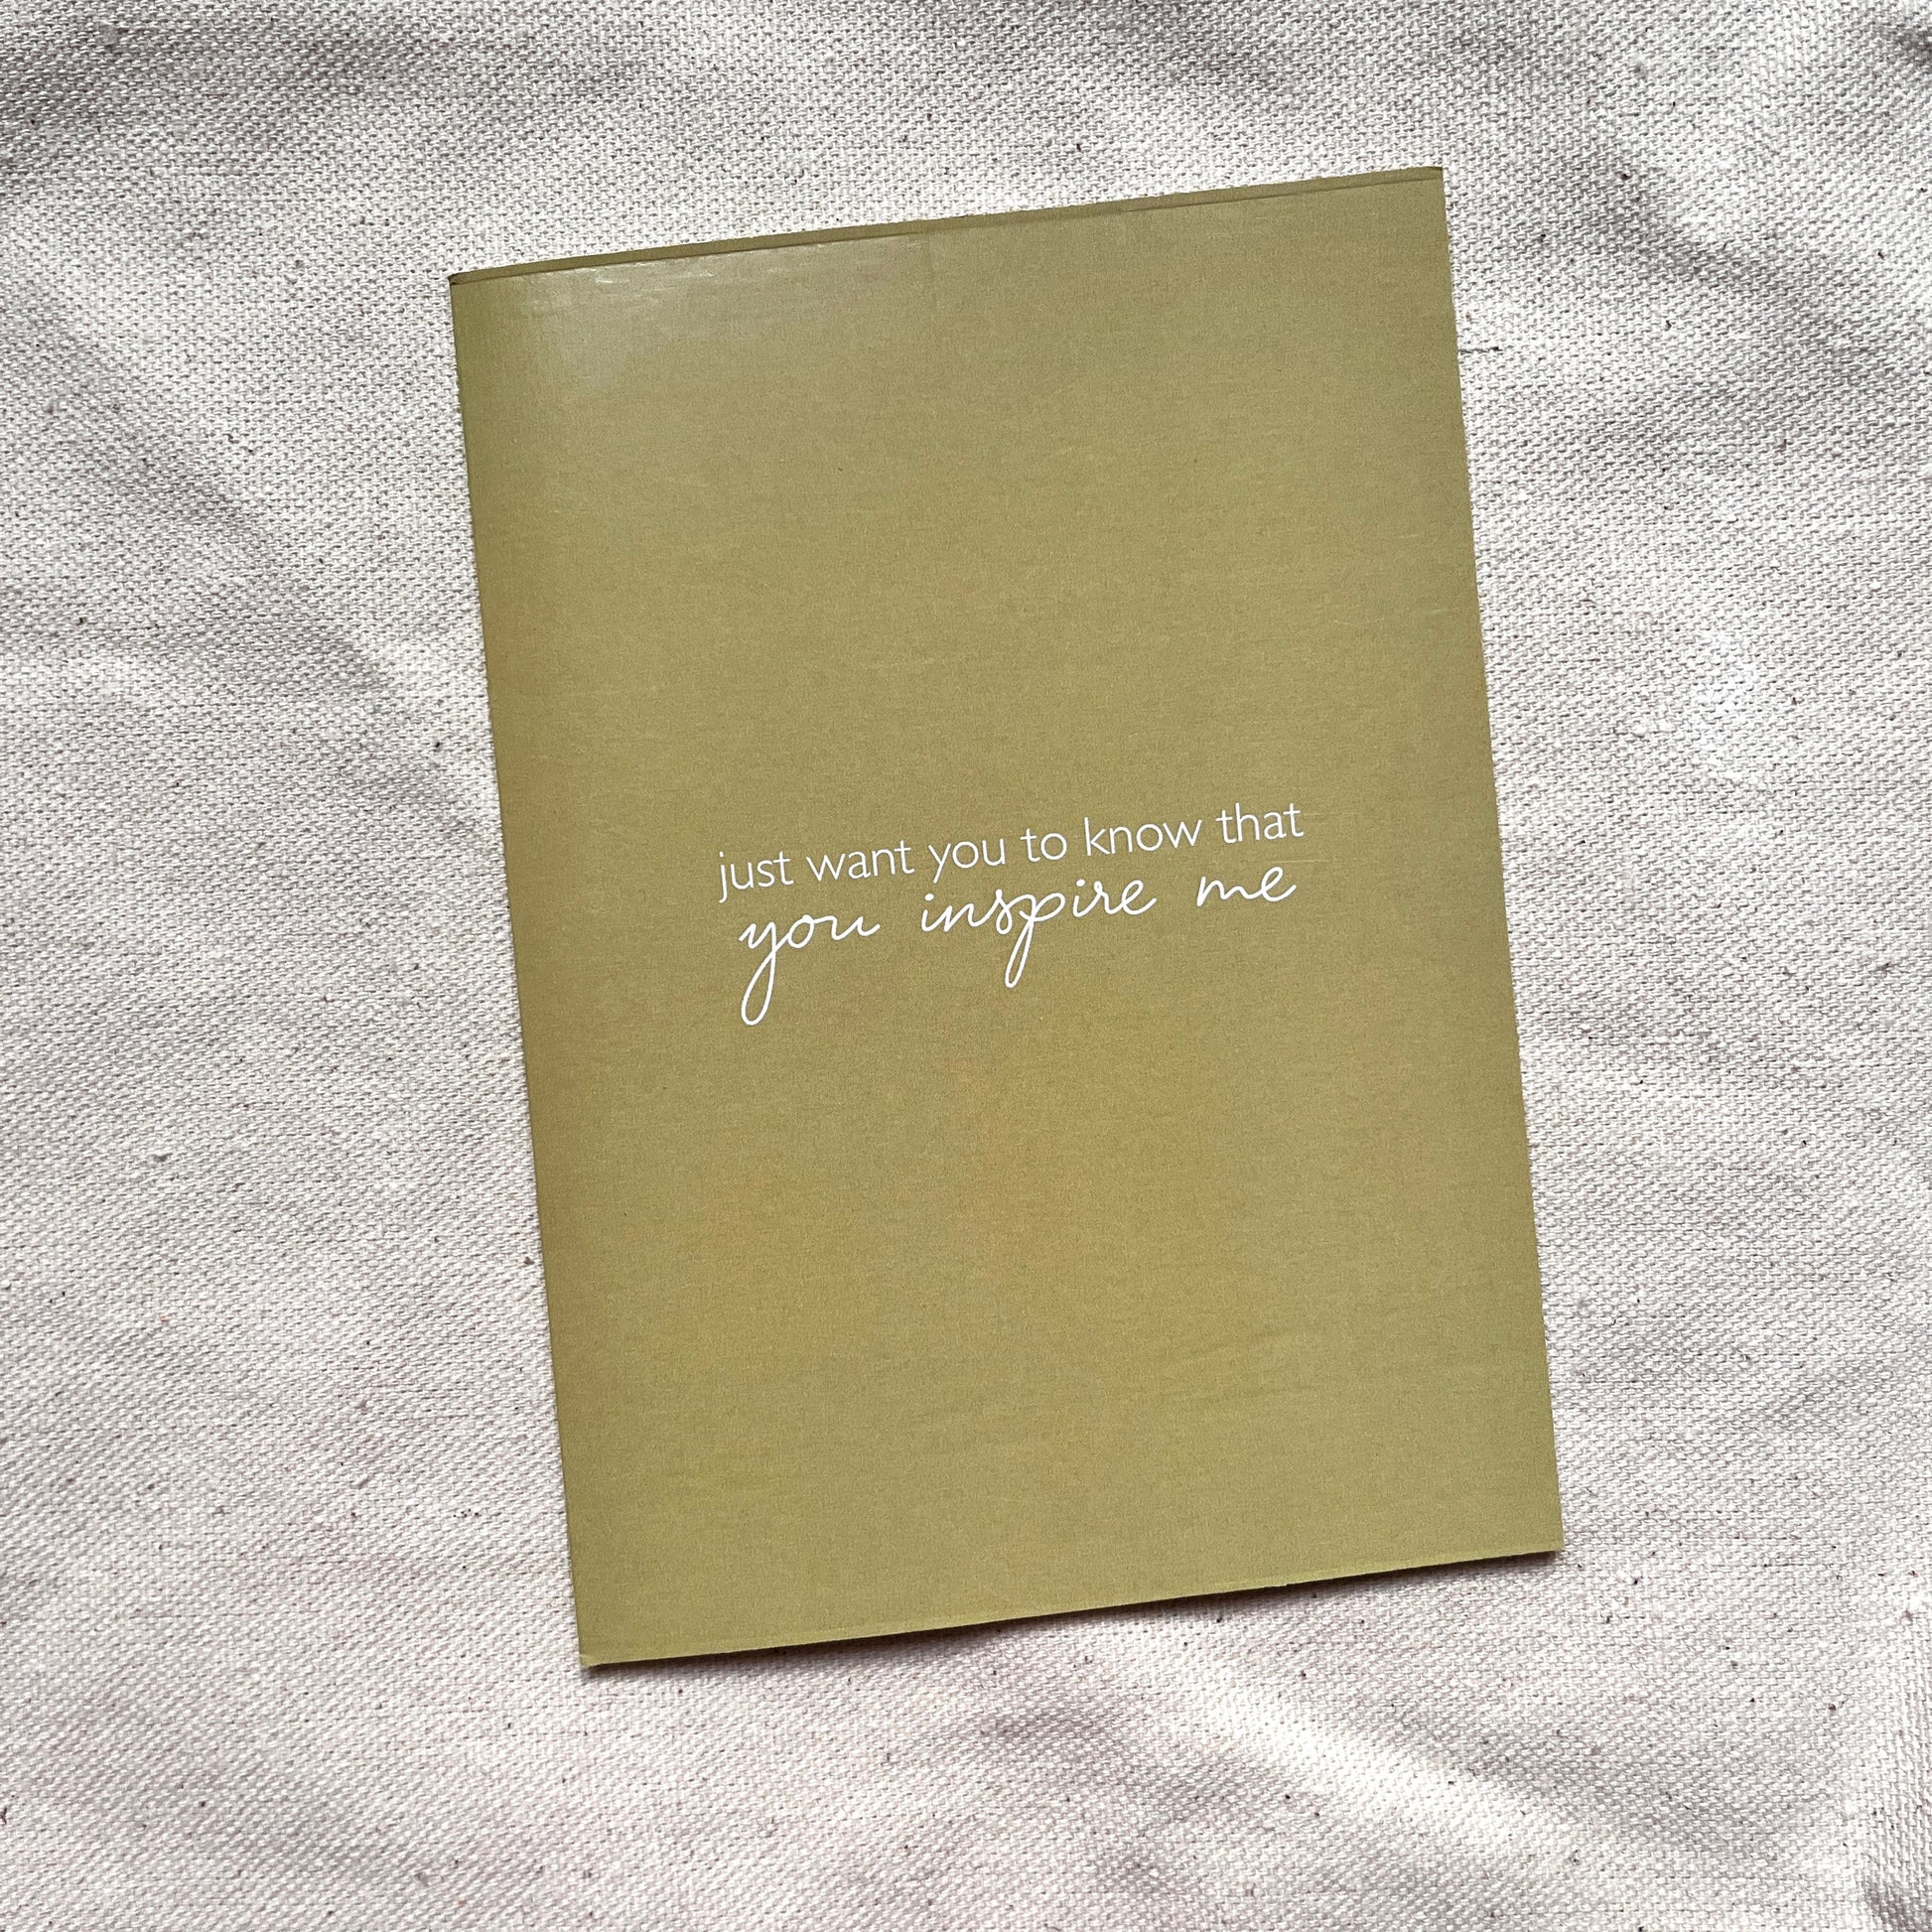 just want you to know that
you inspire me